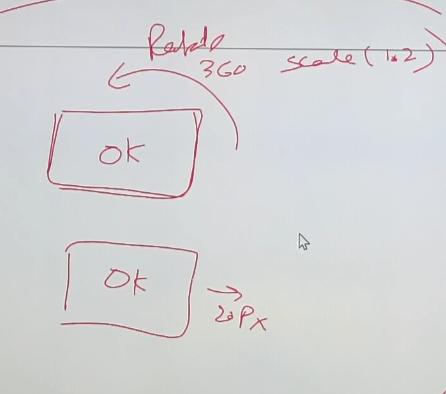 Rotate
360 scale(1.2)
OK
OK
20px